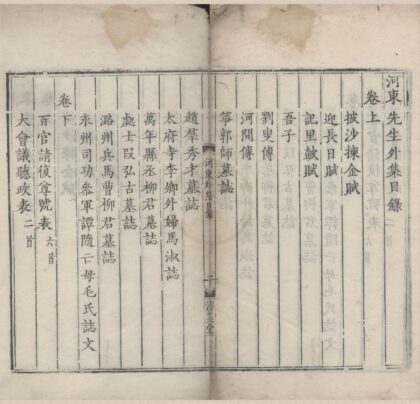 河東先生外集目錄
卷上
披沙揀金賦
迎長日賦
記里鼓賦
吾子
劉叟傳
河間傳
箏郭師墓誌
河東外集目錄
濟美堂
趙羣秀才墓誌
太府寺李卿外婦馬淑誌
萬年縣丞柳君墓誌
處士段弘古墓誌
潞州兵馬曹柳君墓誌
永州司功參軍譚隨亡母毛氏誌文
卷下
百官請復尊號表 六首
大會議聽政表 二首